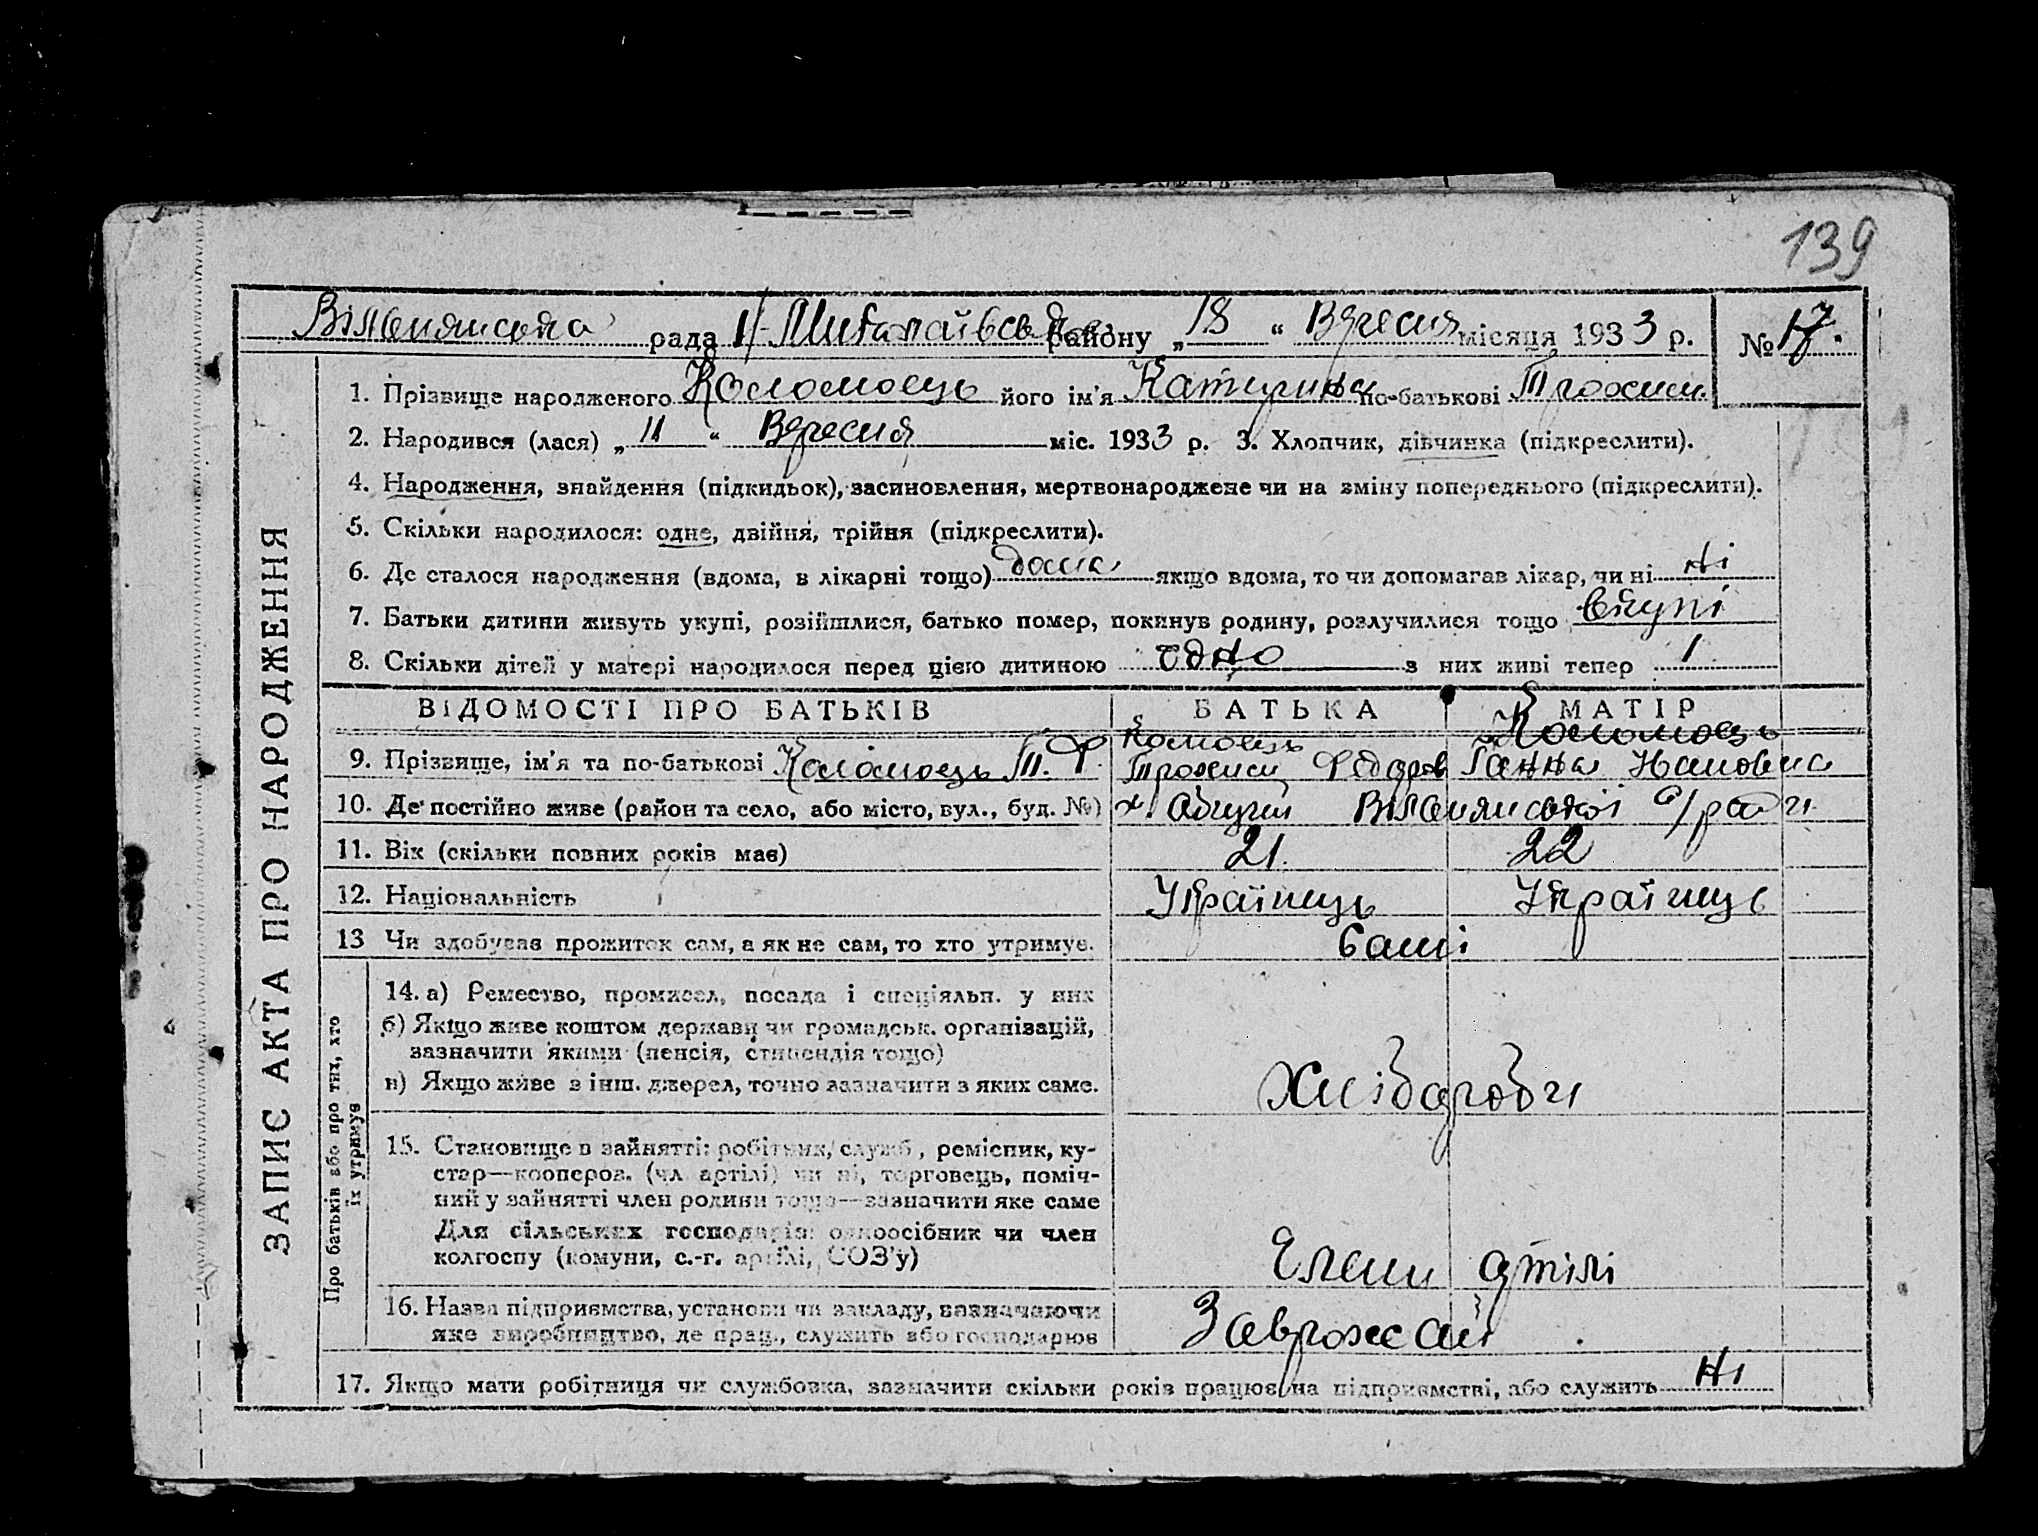 139
Вільнянська рада Н-Миколаївськ району „18“ Вересня місяця 1933 р. № 17.
ЗАПИС АКТА ПРО НАРОДЖЕННЯ
1. Прізвище народженого Коломоець його ім'я Катерина по-батькові Трохим.
2. Народився (лася) „11“ Вересня міс. 1933 р. 3. Хлопчик, дівчинка (підкреслити).
4. Народження, знайдення (підкидьок), засиновлення, мертвонароджене чи на зміну попереднього (підкреслити).
5. Скільки народилося: одне, двійня, трійня (підкреслити).
6. Де сталося народження (вдома, в лікарні тощо) дома якщо вдома, то чи допомагав лікар, чи ні Ні
7. Батьки дитини живуть укупі, розійшлися, батько помер, покинув родину, розлучилися тощо вкупі
8. Скільки дітей у матері народилося перед цією дитиною одно з них живі тепер 1
ВІДОМОСТІ ПРО БАТЬКІВ БАТЬКА МАТІР
Коломоець
9. Прізвище, ім'я та по-батькові Коломоець Т. Ф. Трохим Федоров Ганна
10. Де постійно живе (район та село, або місто, вул., буд. №) х. Вільнянської с/ради
11. Вік (скільки повних років має) 21. 22
12. Національність Українець Українець
13 Чи здобував прожиток сам, а як не сам, то хто утримує. Самі
Про батьків або про тих, хто
їх утримує
14. а) Ремество, промисел, посада і спеціяльн. у них
б) Якщо живе коштом держави чи громадськ. організацій,
зазначити якими (пенсія, стипендія тощо)
в) Якщо живе з інш. джерел, точно зазначити з яких саме. Хлібороби
15. Становище в зайнятті: робітник, служб., ремісник, ку-
стар—кооперов. (чл. артілі) чи ні, торговець, поміч-
ний у зайнятті член родини тощо—зазначити яке саме
Для сільських господарів: одноосібник чи член
колгоспу (комуни, с.-г. артілі, СОЗ'у) Члени артілі
16. Назва підприємства, установи чи закладу, зазначаючи
яке виробництво, де прац., служить або господарює За врожай
17. Якщо мати робітниця чи службовка, зазначити скільки років працює на підприємстві, або служить Ні